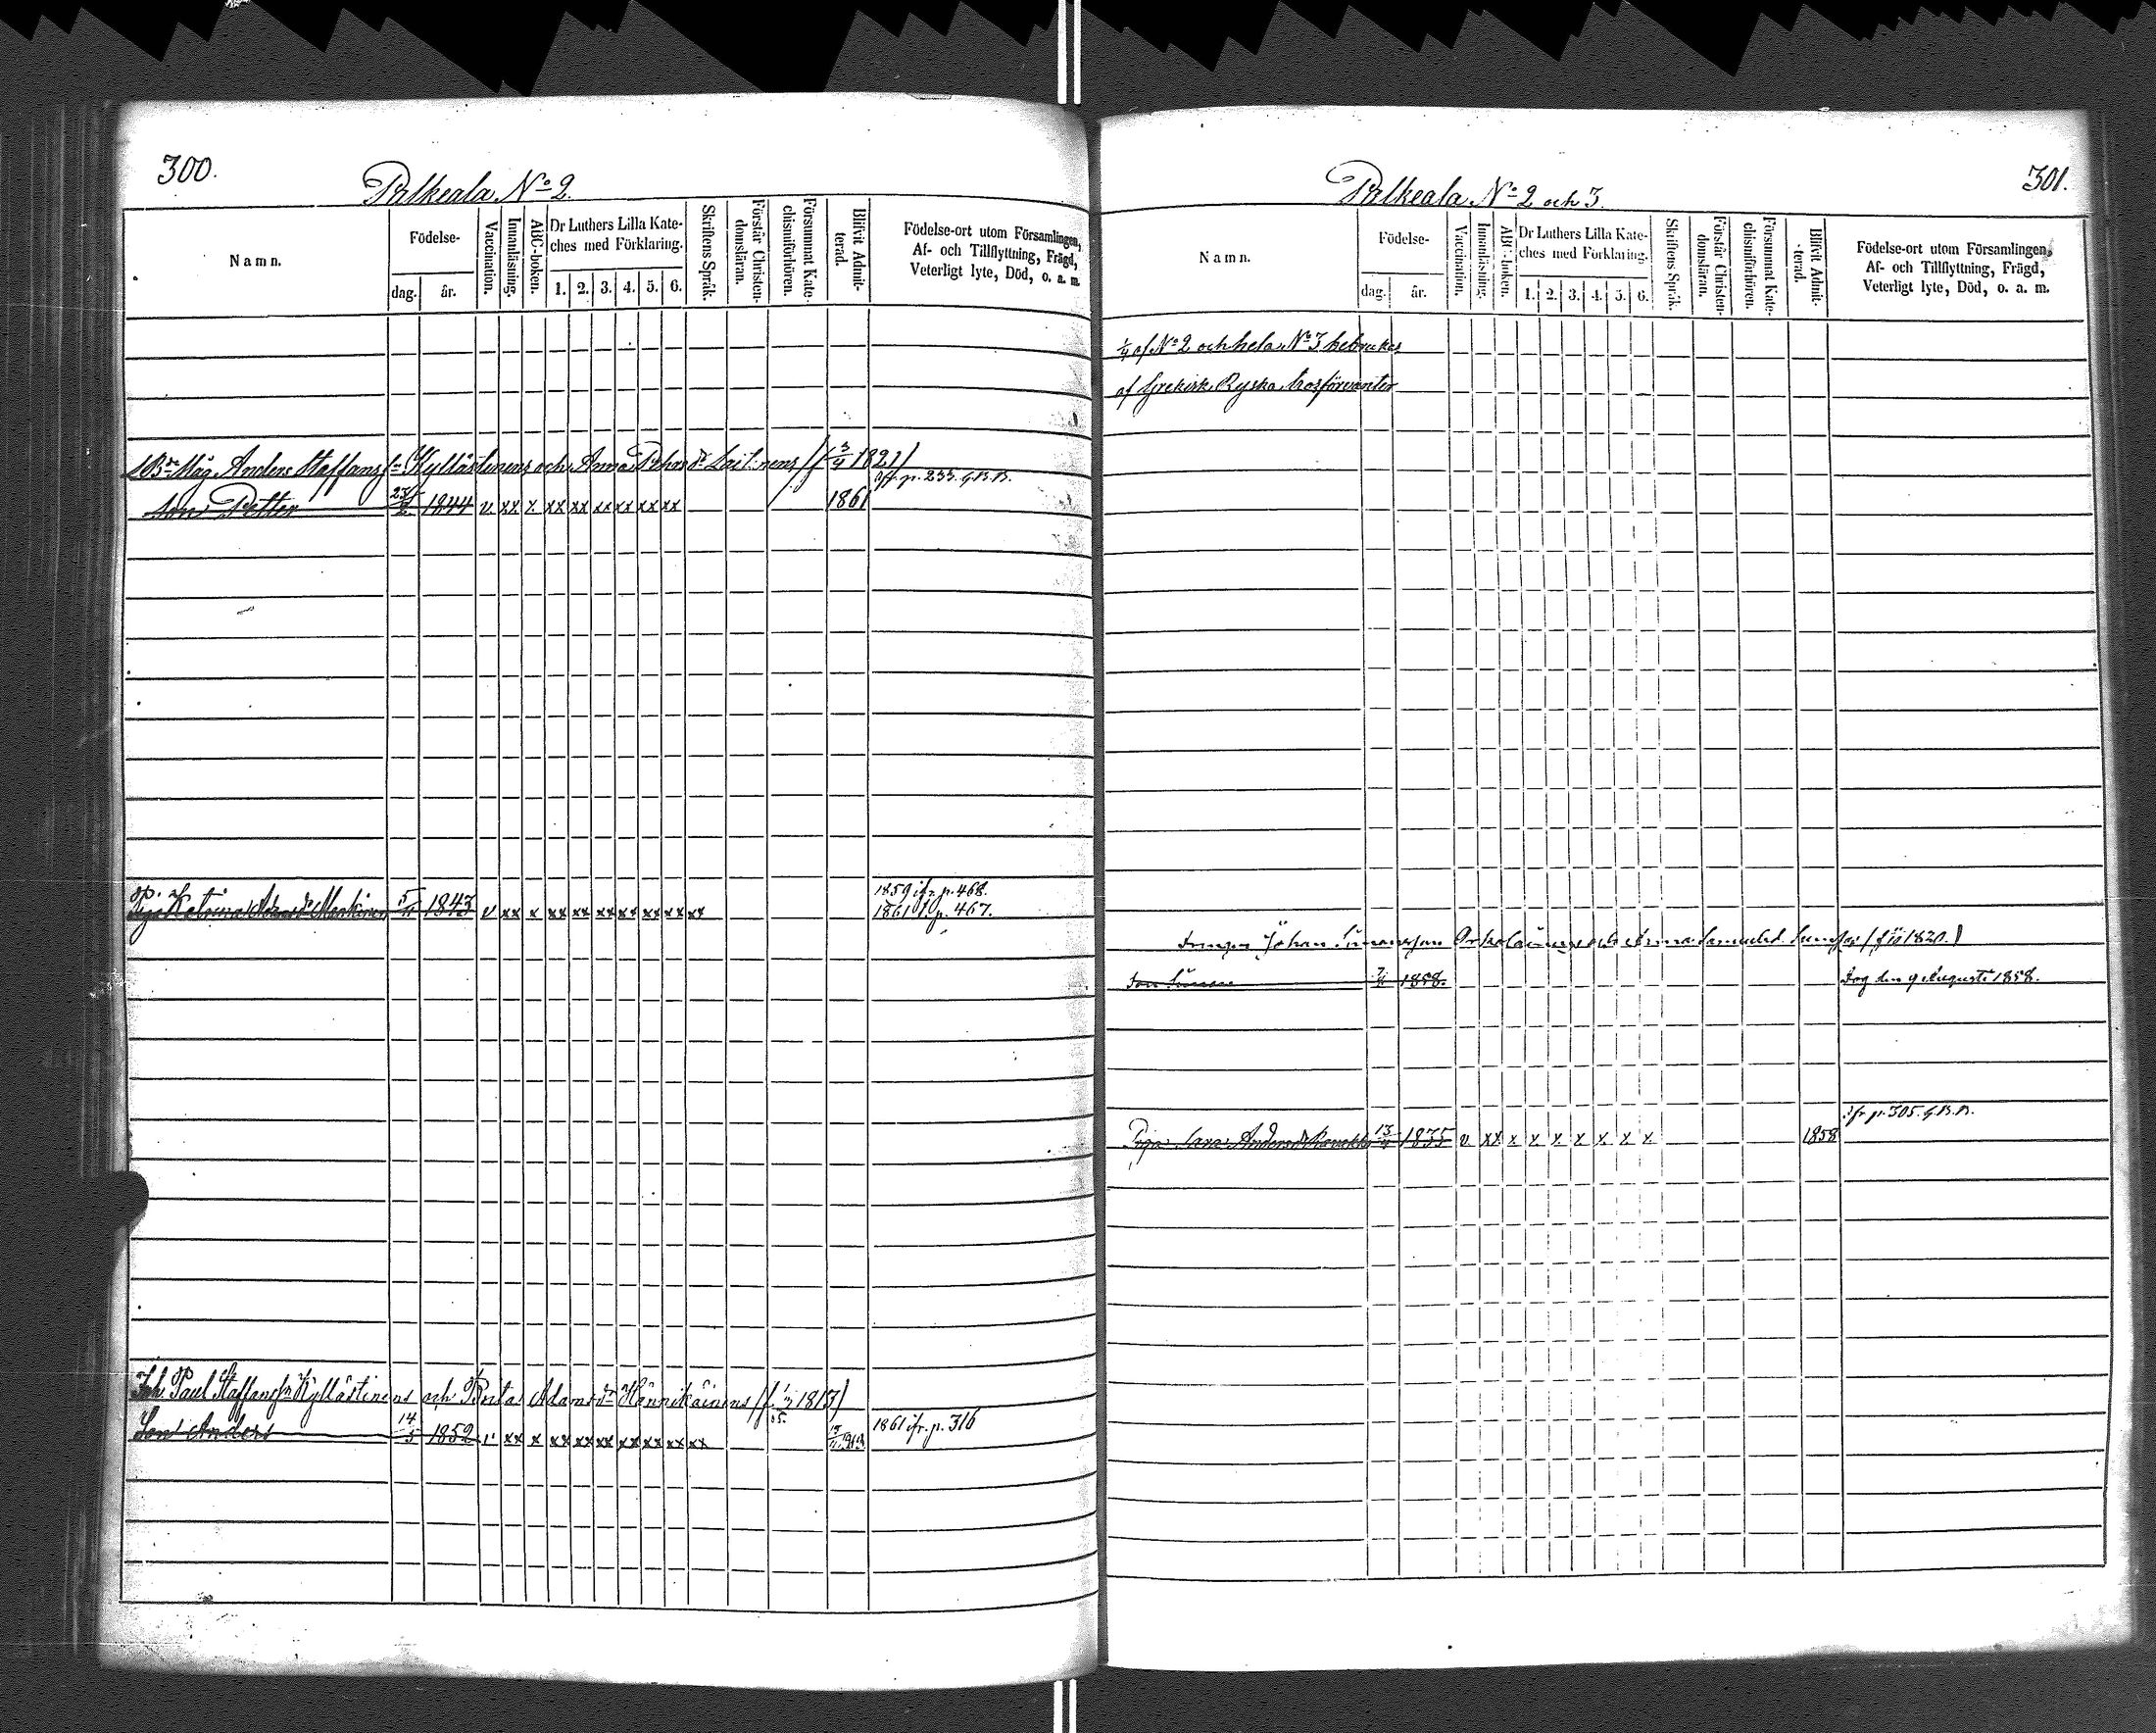 300.
Pelkeala No 2.
Namn.
Födelse-
dag.
år.
Vaccination.
Innanläsning.
ABC-boken.
Dr Luthers Lilla Kate-
ches med Förklaring.
1. 2. 3. 4. 5. 6.
Skriftens Språk.
Förstår Christen-
domsläran.
Försummat Kate-
chismiförhören.
Blifvit Admit-
terad.
Födelse-ort utom Församlingen,
Af- och Tillflyttning, Frägd,
Veterligt lyte, Död, o. a. m.
Måg Anders Staffans Kyllästinens och Anna Pehrs dr Laitinens (f 3/4 1821)
p. 233. G.B.B.
Son Petter 1844 v. xx x xx xx xx xx xx xx 1861
1859 ifr. p. 468.
Piga Katrina 1843 v xx x xx xx xx xx xx xx xx 1861 p. 467.
Inh Paul Staffans Kyllästinens och Brita Adams dr Hännikäinens 1813)
Son Anders 14/5 1852 v xx x xx xx xx xx xx xx xx 1861 ifr. p. 316
301.
Pelkeala No 2 och 3.
Namn.
Födelse-
dag.
år.
Vaccination.
Innanläsning.
ABC-boken.
Dr Luthers Lilla Kate-
ches med Förklaring.
1. 2. 3. 4. 5. 6.
Skriftens Språk.
Förstår Christen-
domsläran.
Försummat Kate-
chismiförhören.
Blifvit Admit-
terad.
Födelse-ort utom Församlingen,
Af- och Tillflyttning, Frägd,
Veterligt lyte, Död, o. a. m.
1/4 af No 2 och hela No 3 bebrukas
af Grekisk Ryska trosförvanter
Johan och Anna 1820.)
Son 1858. Dog den 9 Augusti 1858.
ifr p. 305. G.B.B.
Piga Sara Anders dr 13 1835 v xx x x x x x x x 1858